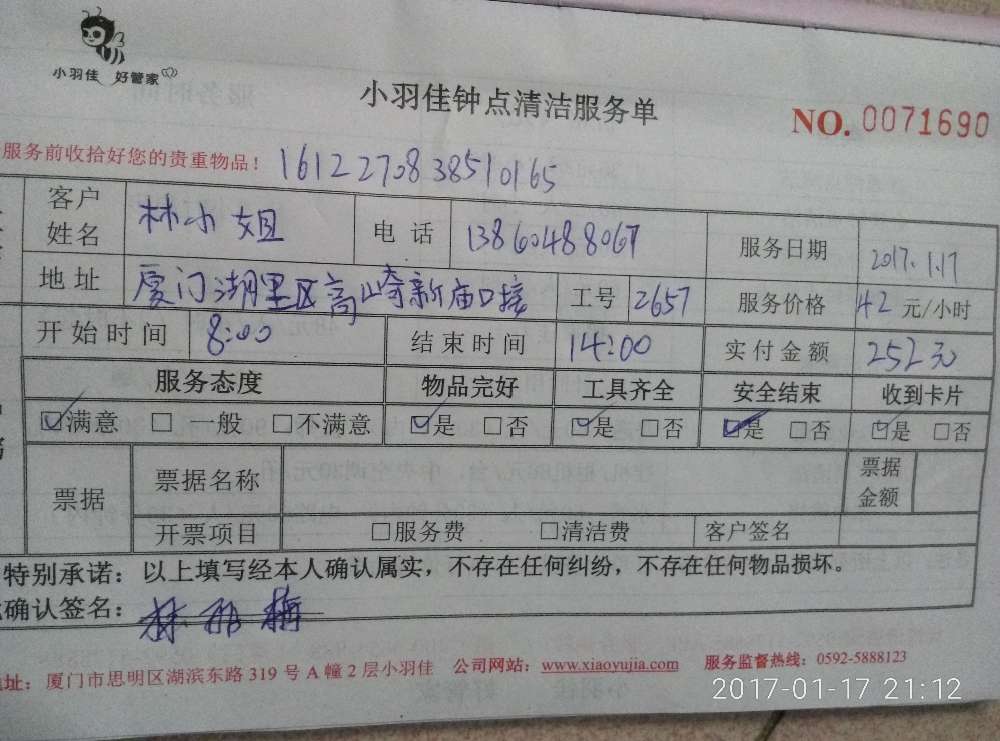 小羽佳 好管家
小羽佳钟点清洁服务单
NO. 0071690
服务前收拾好您的贵重物品！ 1612270838510165
客户姓名 林小姐 电话 13860488067 服务日期 2017.1.17
地址 厦门湖里区高崎新庙口接 工号 2657 服务价格 42 元/小时
开始时间 8:00 结束时间 14:00 实付金额 252元
服务态度 物品完好 工具齐全 安全结束 收到卡片
☑满意 □一般 □不满意 ☑是 □否 ☑是 □否 ☑是 □否 ☑是 □否
票据 票据名称 票据金额
开票项目 □服务费 □清洁费 客户签名
特别承诺：以上填写经本人确认属实，不存在任何纠纷，不存在任何物品损坏。
确认签名：林 梅
地址：厦门市思明区湖滨东路 319 号 A 幢 2 层小羽佳 公司网站：www.xiaoyujia.com 服务监督热线：0592-5888123
2017-01-17 21:12